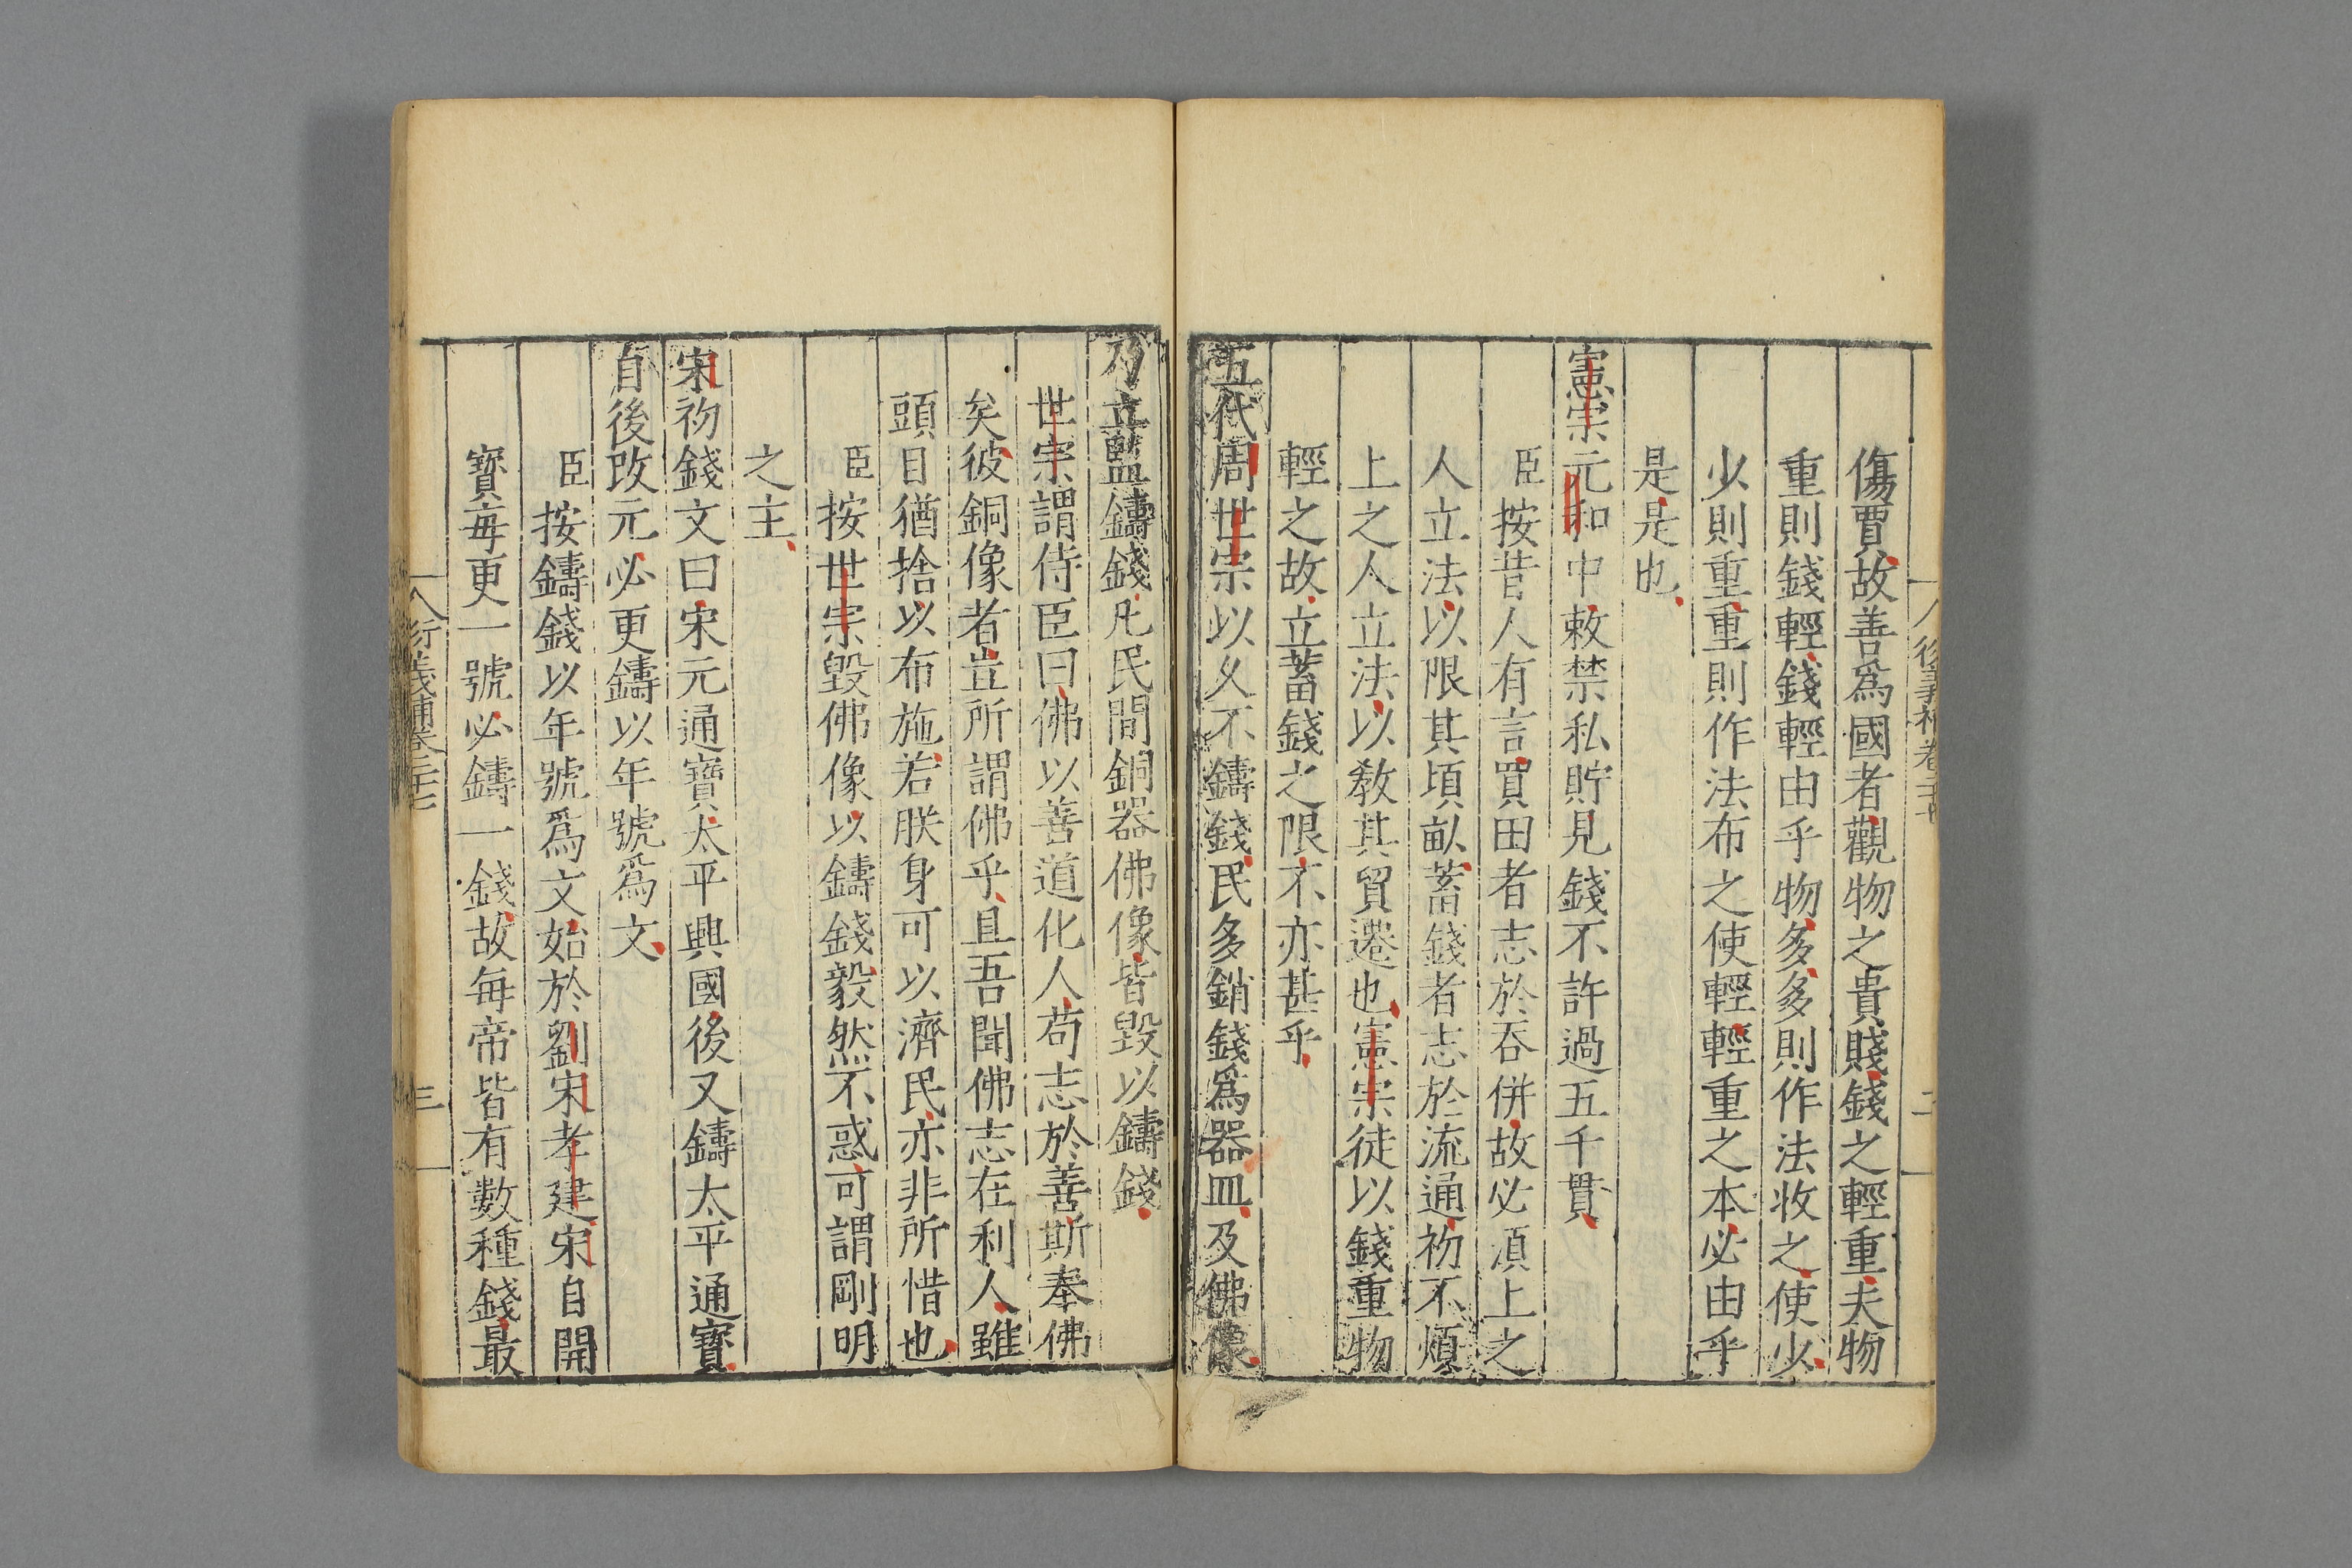 傷賈故善爲國者觀物之貴賤錢之輕重夫物
重則錢輕錢輕由乎物多多則作法收之使少
少則重重則作法布之使輕輕重之本必由乎
是是也
憲宗元和中敕禁私貯見錢不許過五千貫
臣按昔人有言買田者志於吞併故必湏上之
人立法以限其頃畝蓄錢者志於流通初不煩
上之人立法以教其貿遷也憲宗徒以錢重物
輕之故立蓄錢之限不亦甚乎
五代周世宗以乆不鑄錢民多銷錢爲器皿及佛像
乃立監鑄錢凡民間銅器佛像皆毀以鑄錢
世宗謂侍臣曰佛以善道化人苟志於善斯奉佛
矣彼銅像者豈所謂佛乎且吾聞佛志在利人雖
頭目猶捨以布施若朕身可以濟民亦非所惜也
臣按世宗毀佛像以鑄錢毅然不惑可謂剛明
之主
宋初錢文曰宋元通寶太平興國後又鑄太平通寳
自後改元必更鑄以年號爲文
臣按鑄錢以年號爲文始於劉宋孝建宋自開
寳毎更一號必鑄一錢故每帝皆有數種錢最
衍義補卷二十七
三